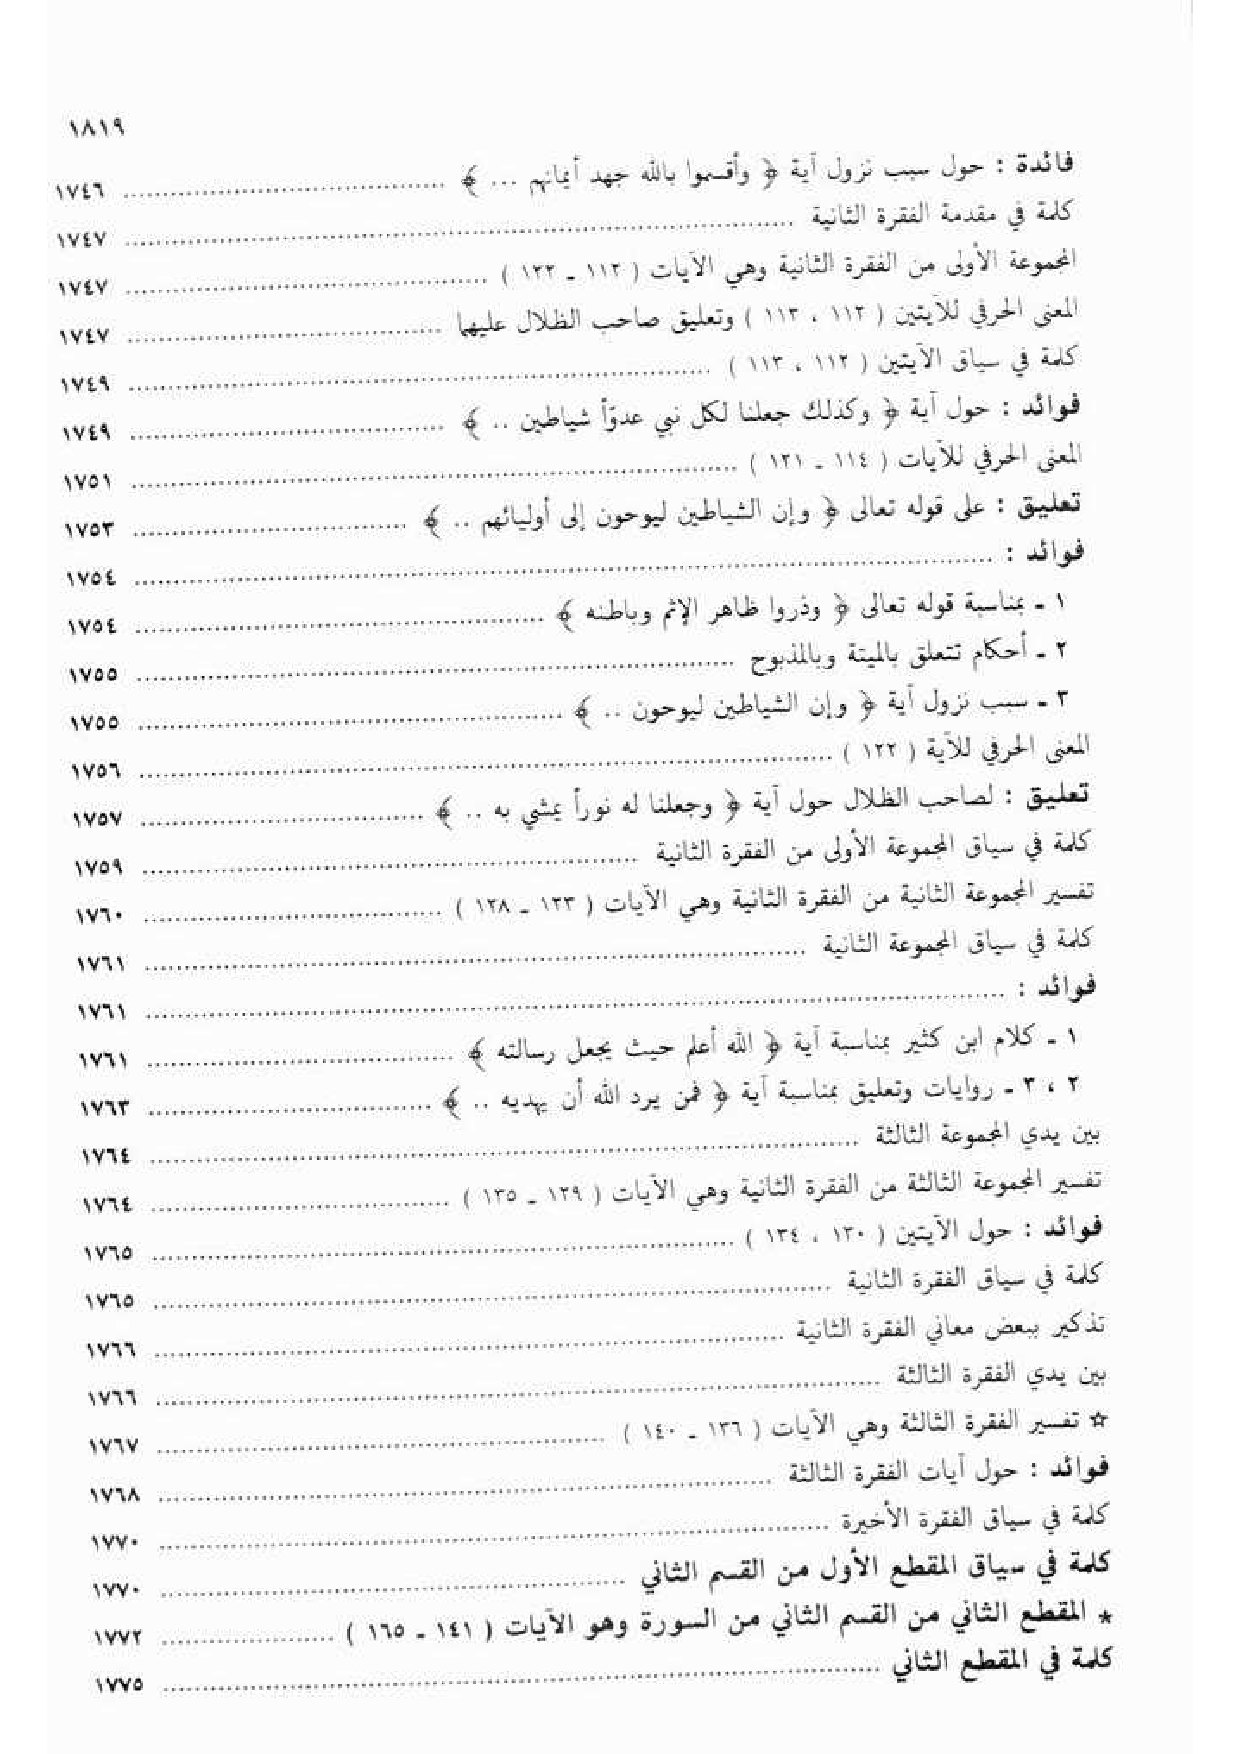 ١٨١٩
فائدة : حول سبب نزول آية ﴿ وأقسموا بالله جهد أيمانهم ... ﴾ ........ ١٧٤٦
كلمة في مقدمة الفقرة الثانية ........ ١٧٤٧
المجموعة الأولى من الفقرة الثانية وهي الآيات ( ١١٢ ـ ١٢٢ ) ........ ١٧٤٧
المعنى الحرفي للآيتين ( ١١٢ ، ١١٣ ) وتعليق صاحب الظلال عليها ........ ١٧٤٧
كلمة في سياق الآيتين ( ١١٢ ، ١١٣ ) ........ ١٧٤٩
فوائد : حول آية ﴿ وكذلك جعلنا لكل نبي عدوّاً شياطين .. ﴾ ........ ١٧٤٩
المعنى الحرفي للآيات ( ١١٤ ـ ١٢١ ) ........ ١٧٥١
تعليق : على قوله تعالى ﴿ وإن الشياطين ليوحون إلى أوليائهم .. ﴾ ........ ١٧٥٣
فوائد : ........ ١٧٥٤
١ ـ بمناسبة قوله تعالى ﴿ وذروا ظاهر الإثم وباطنه ﴾ ........ ١٧٥٤
٢ ـ أحكام تتعلق بالميتة وبالمذبوح ........ ١٧٥٥
٣ ـ سبب نزول آية ﴿ وإن الشياطين ليوحون .. ﴾ ........ ١٧٥٥
المعنى الحرفي للآية ( ١٢٢ ) ........ ١٧٥٦
تعليق : لصاحب الظلال حول آية ﴿ وجعلنا له نوراً يمشي به .. ﴾ ........ ١٧٥٧
كلمة في سياق المجموعة الأولى من الفقرة الثانية ........ ١٧٥٩
تفسير المجموعة الثانية من الفقرة الثانية وهي الآيات ( ١٢٣ ـ ١٢٨ ) ........ ١٧٦٠
كلمة في سياق المجموعة الثانية ........ ١٧٦١
فوائد : ........ ١٧٦١
١ ـ كلام ابن كثير بمناسبة آية ﴿ الله أعلم حيث يجعل رسالته ﴾ ........ ١٧٦١
٢ ، ٣ ـ روايات وتعليق بمناسبة آية ﴿ فمن يرد الله أن يهديه .. ﴾ ........ ١٧٦٣
بين يدي المجموعة الثالثة ........ ١٧٦٤
تفسير المجموعة الثالثة من الفقرة الثانية وهي الآيات ( ١٢٩ ـ ١٣٥ ) ........ ١٧٦٤
فوائد : حول الآيتين ( ١٣٠ ، ١٣٤ ) ........ ١٧٦٥
كلمة في سياق الفقرة الثانية ........ ١٧٦٥
تذكير ببعض معاني الفقرة الثانية ........ ١٧٦٦
بين يدي الفقرة الثالثة ........ ١٧٦٦
☆ تفسير الفقرة الثالثة وهي الآيات ( ١٣٦ ـ ١٤٠ ) ........ ١٧٦٧
فوائد : حول آيات الفقرة الثالثة ........ ١٧٦٨
كلمة في سياق الفقرة الأخيرة ........ ١٧٧٠
كلمة في سياق المقطع الأول من القسم الثاني ........ ١٧٧٠
★ المقطع الثاني من القسم الثاني من السورة وهو الآيات ( ١٤١ ـ ١٦٥ ) ........ ١٧٧٢
كلمة في المقطع الثاني ........ ١٧٧٥